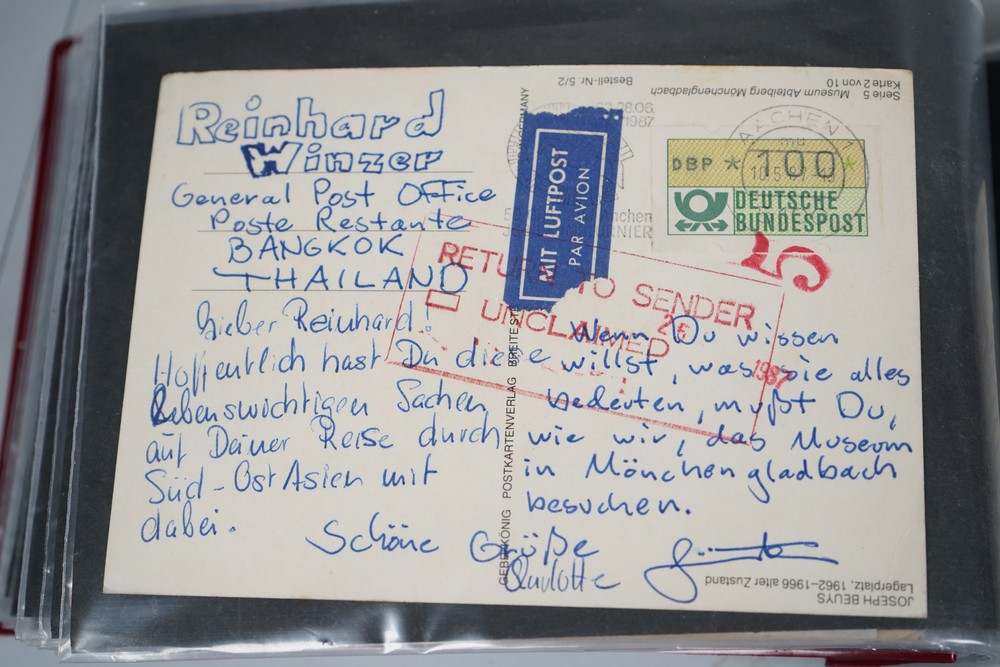 Reinhard
Winzer
General Post Office
Poste Restante
BANGKOK
THAILAND
Lieber Reinhard!
Hoffentlich hast Du diese
Lebenswichtigen Sachen
auf Deiner Reise durch
Süd-Ost Asien mit
dabei.
Wenn Du wissen
willst, was sie alles
bedeuten, mußt Du,
wie wir, das Museum
in Mönchengladbach
besuchen.
Schöne Grüße
MIT LUFTPOST
PAR AVION
DBP * 100 *
DEUTSCHE
BUNDESPOST
AACHEN 1
28.06.
1987
RETURN TO SENDER
UNCLAIMED
1987
Serie 5 Museum Abteiberg Mönchengladbach
Karte 2 von 10
Bestell-Nr. 5/2
GEBR. KÖNIG POSTKARTENVERLAG BREITE
GERMANY
JOSEPH BEUYS
Lagerplatz, 1962–1966 alter Zustand